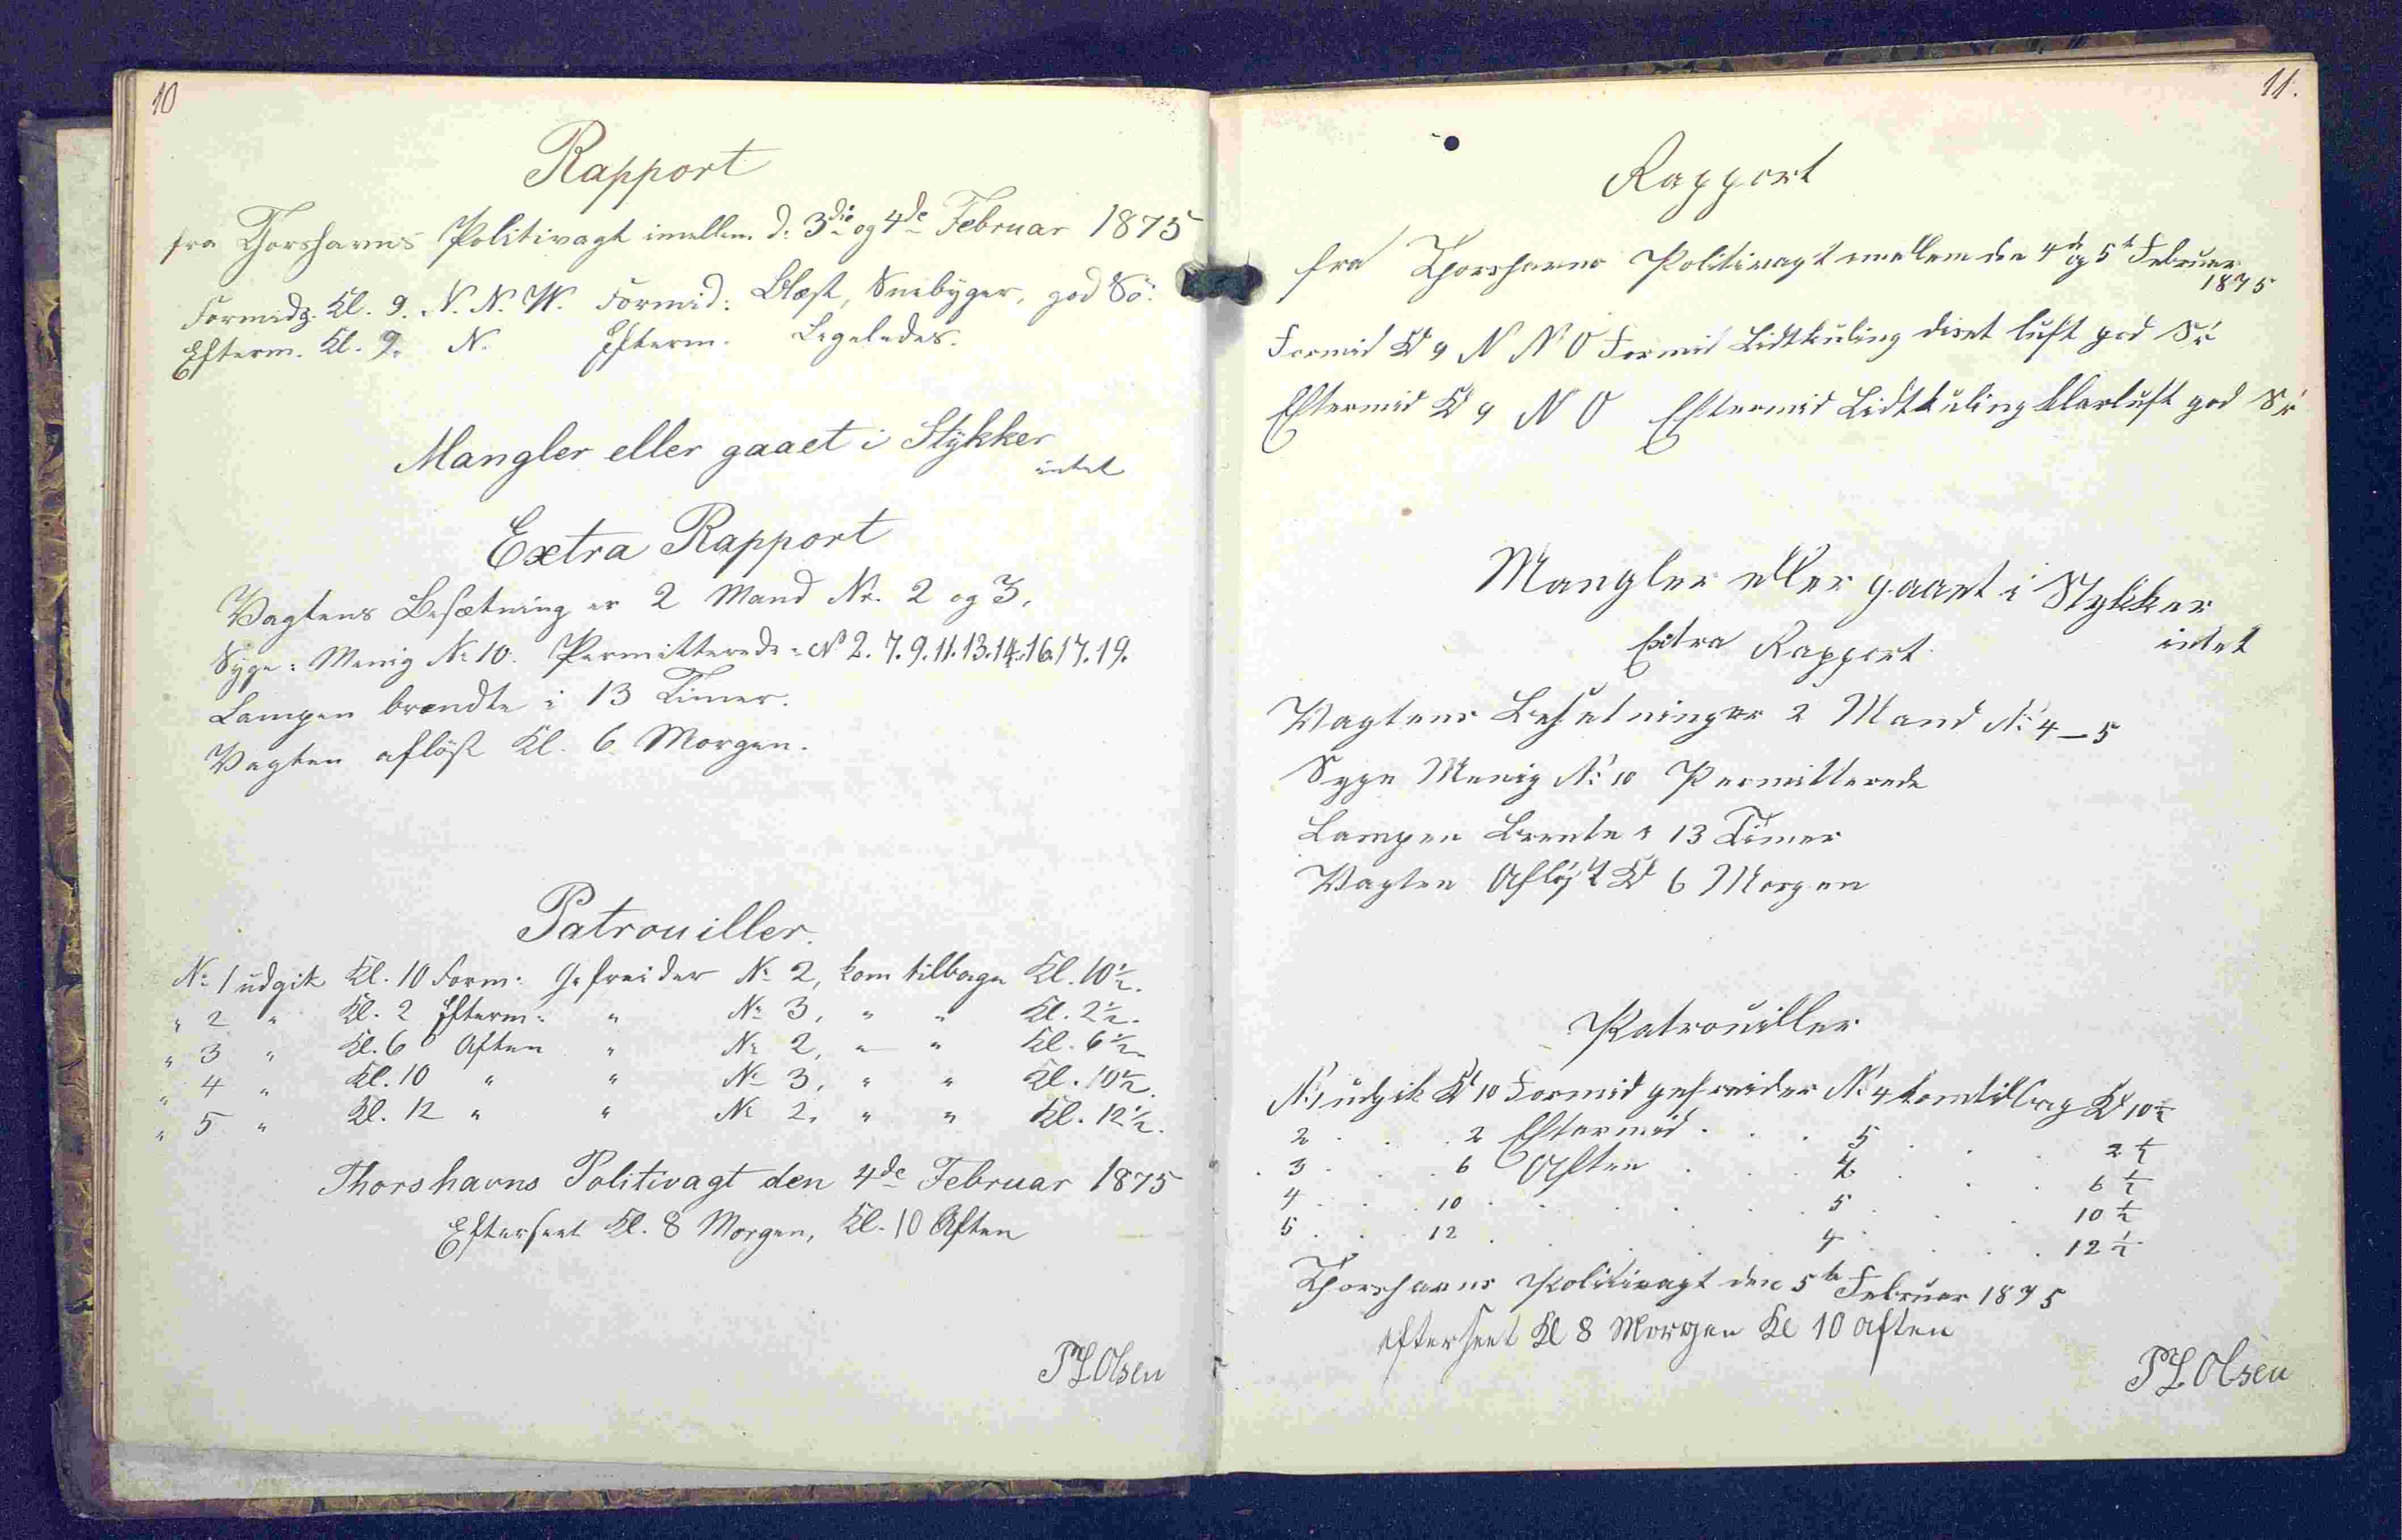 10
Rapport
fra Thorshavns Politivagt imellem d: 3die og 4de Februar 1875
Formidg. Kl. 9. N. N. W. Formid: Blæst, Snebyger, god Sö.
Efterm. Kl. 9. N. Efterm. Ligeledes.
Mangler eller gaaet i Stykker
intet
Extra Rapport
Vagtens Besætning er 2 Mand No. 2 og 3.
Syge: Menig No 10. Permitterede: No 2. 7. 9. 11. 13. 14. 16. 17. 19.
Lampen brændte i 13 Timer.
Vagten aflöst Kl. 6 Morgen.
Patrouiller.
No 1 udgik Kl. 10 Form: Gefreider No 2, kom tilbage Kl. 10½.
" 2 " Kl. 2 Efterm: " No 3, " " Kl. 2½.
" 3 " Kl. 6 Aften " No 2, " " Kl. 6½.
" 4 " Kl. 10 " " No 3, " " Kl. 10½.
" 5 " Kl. 12 " " No 2, " " Kl. 12½.
Thorshavns Politivagt den 4de Februar 1875
Efterseet Kl. 8 Morgen, Kl. 10 Aften
P L Olsen
11.
Rapport
fra Thorshavns Politivagt emellem den 4de og 5te Februar
1875
Formid Kl 9 N N O Formid Lidtkuling diset luft god Sö
Eftermid Kl 9 N O Eftermid Lidtkuling klarluft god Sö
Mangler eller gaaet i Stykker
intet
Extra Rapport
Vagtens Besetning er 2 Mand No 4 – 5
Syge Menig No 10 Permitterede
Lampen Brente i 13 Timer
Vagten Afløst Kl 6 Morgen
Patrouiller
No 1 udgik Kl 10 Formid gefreider No 4 kom tilbag Kl 10½
2 . . . 2 Eftermid . . . 5 . . 2½
. 3 . . . 6 Aften . . . 4 . . 6½
4 . . . 10 . . . . 5 . . 10½
5 . . . 12 . . . . 4 . . 12½
Thorshavns Politivagt den 5te Februar 1875
efterseet Kl 8 Morgen Kl 10 aften
P L Olsen